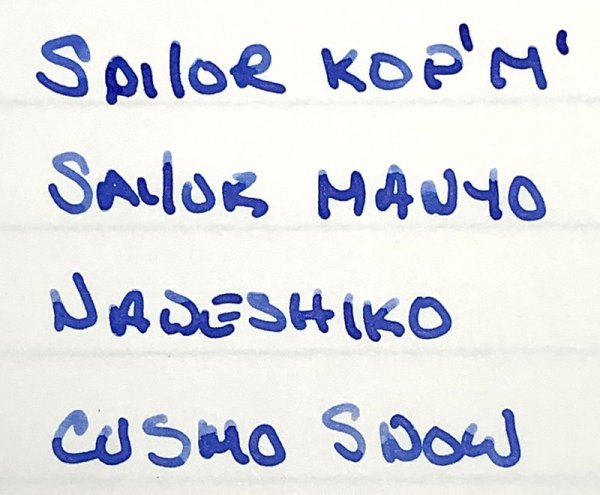 SAILOR KOP'M'
SAILOR MANYO
NADESHIKO
COSMO SNOW